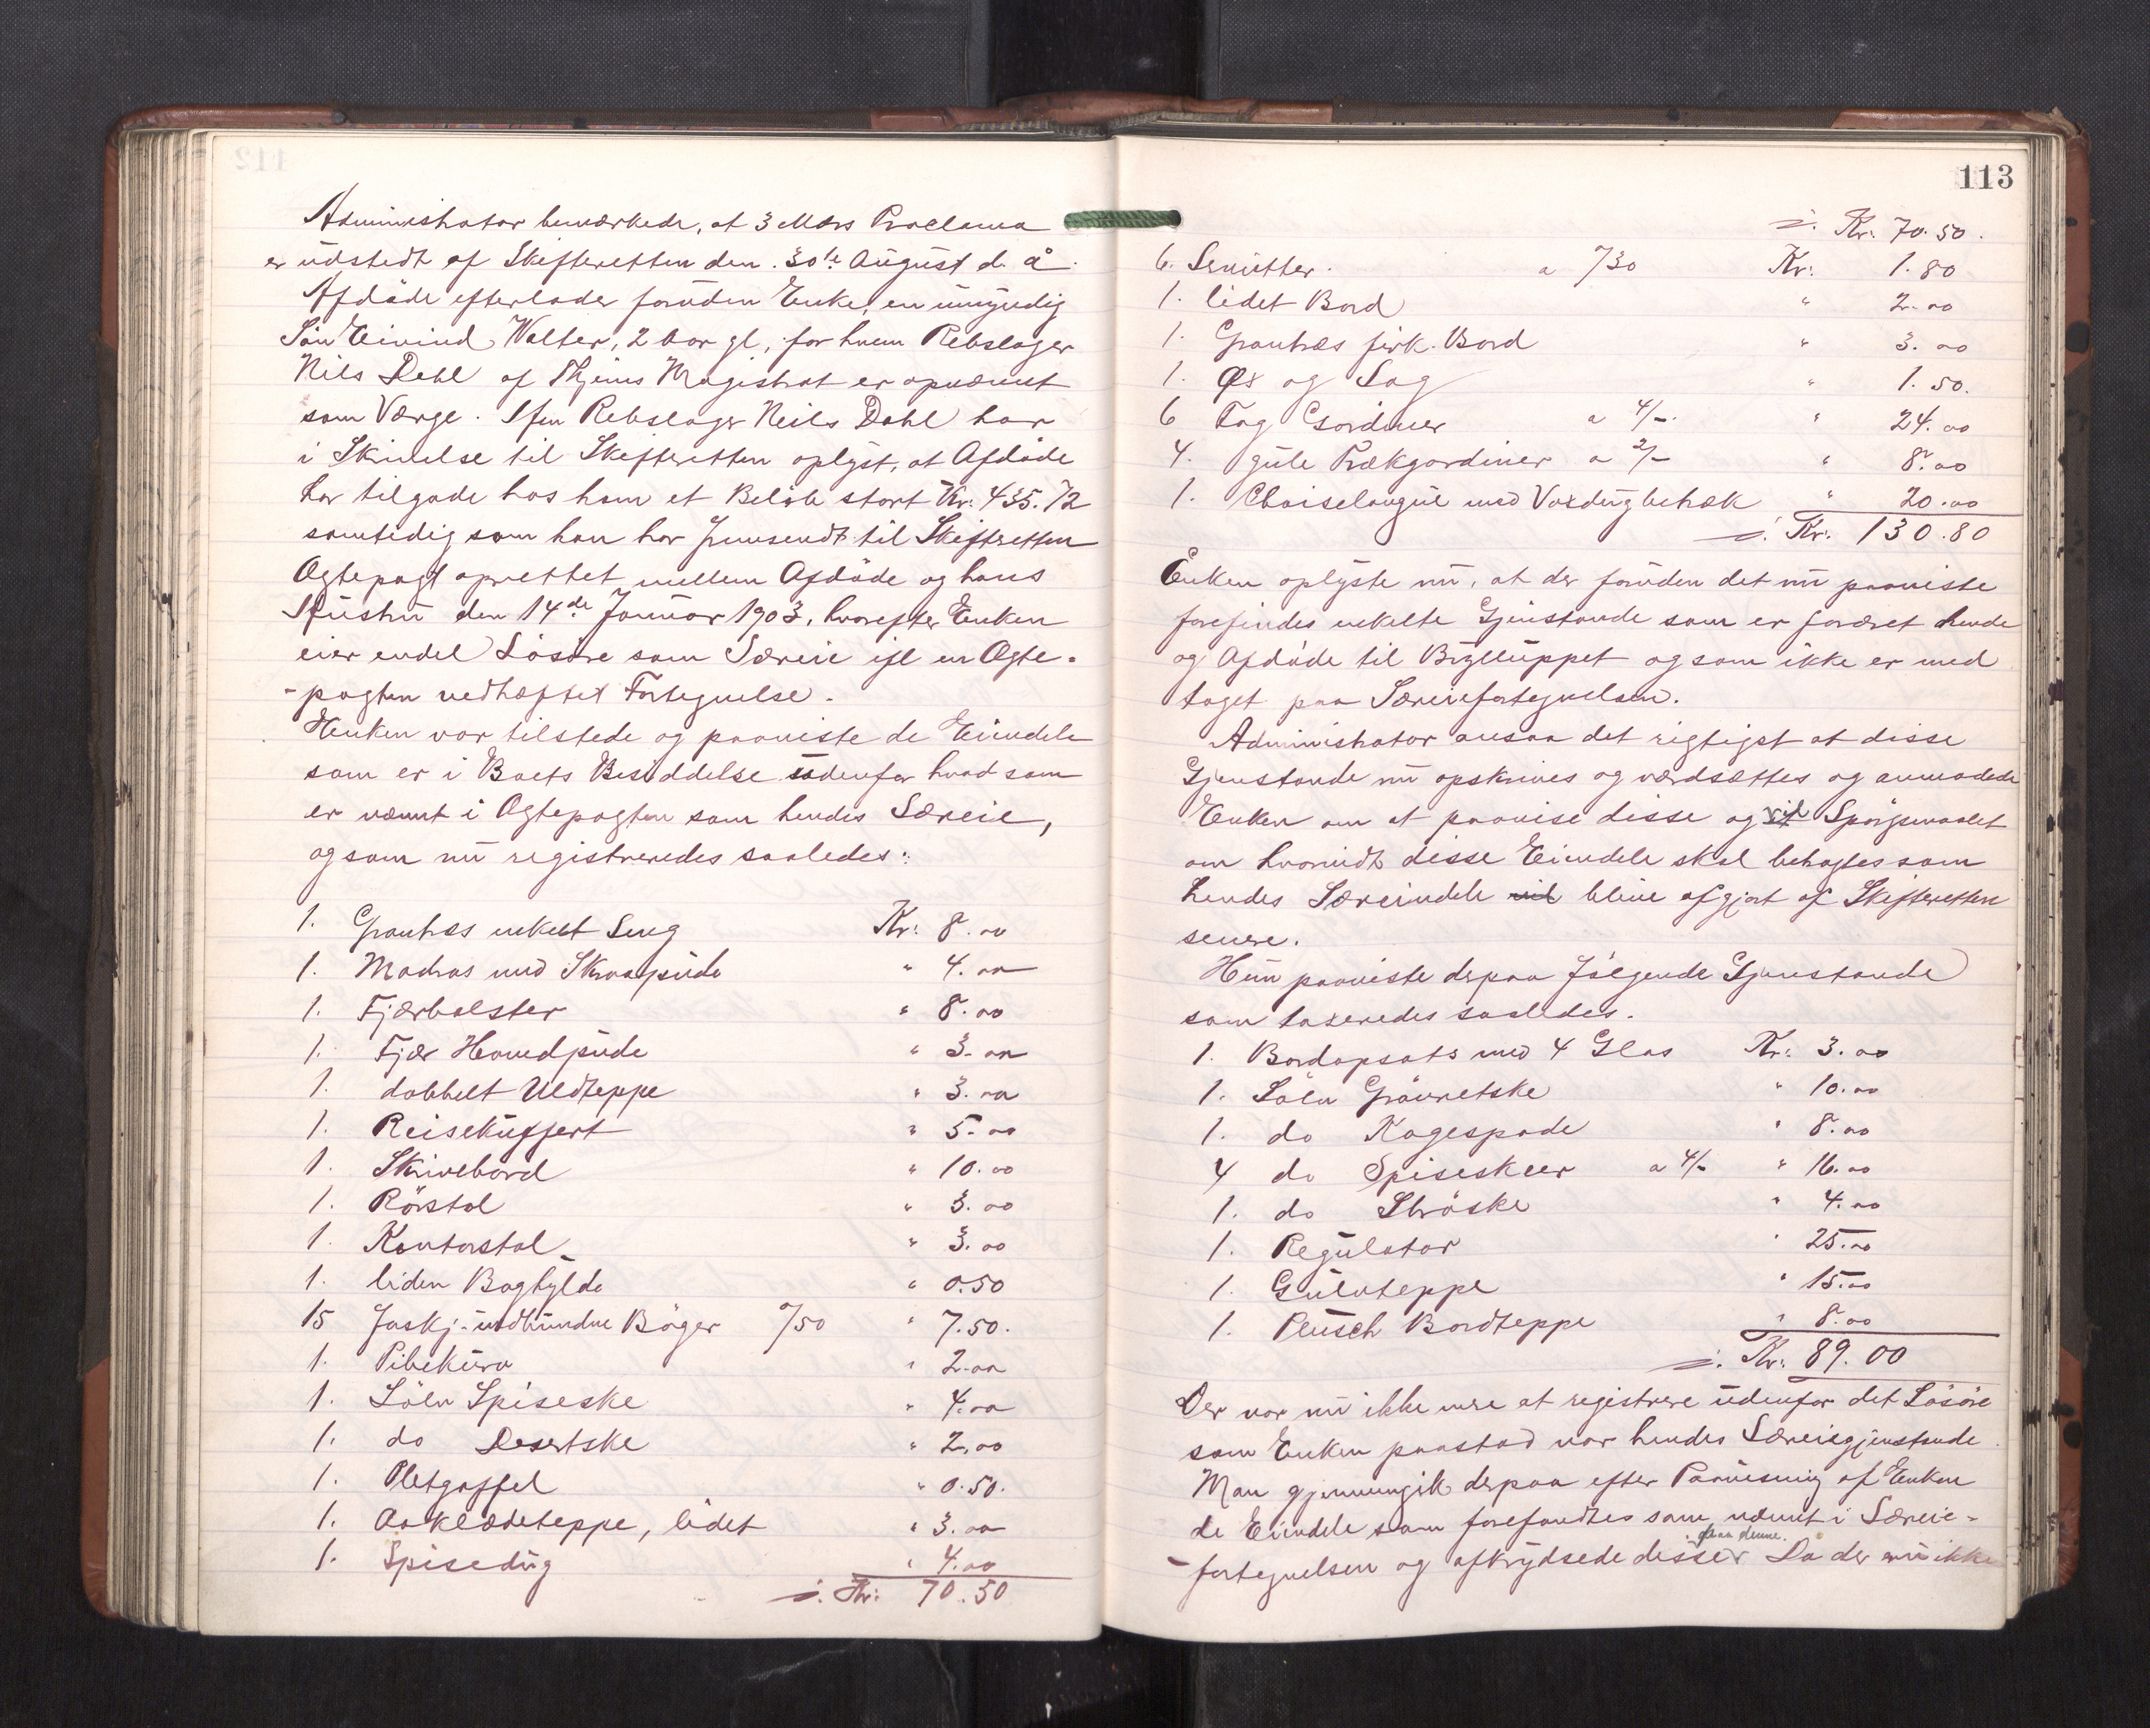 112
Administrator bemærkede, at 3 Mdrs Proclama
er udstedt af Skifteretten den 30te August d. å.
Afdöde efterlader foruden Enke, en umyndig
Sön Eivind Walter, 2 Aar gl, for hvem Rebslager
Nils Dahl af Thjems Magistrat er opnævnt
som Værge. Hr Rebslager Neils Dahl har
i Skrivelse til Skifteretten oplyst, at Afdöde
har tilgode hos ham et Belöb stort Kr: 435.72
samtidig som han har fremsendt til Skifteretten
Ægtepagt oprettet mellem Afdöde og hans
Hustru den 14de Januar 1903, hvorefter Enken
eier endel Lösöre som Særeie ifl en Ægte-
-pagten vedhæftet Fortegnelse.
Enken var tilstede og paaviste de Eiendele
som er i Boets Besiddelse udenfor hvad som
er nævnt i Ægtepagten som hendes Særeie,
og som nu registreredes saaledes:
1. Grantræs enkelt Seng Kr: 8.00
1. Madras med Skraapude " 4.00
1. Fjærbolster " 8.00
1. Fjær Hovedpude " 3.00
1. dobbelt Uldteppe " 3.00
1. Reisekuffert " 5.00
1. Skrivebord " 10.00
1. Rörstol " 3.00
1. Kontorstol " 3.00
1. liden Boghylde " 0.50
15 forskj. indbundne Böger /50 " 7.50.
1. Pibekurv " 2.00
1. Sölv Spiseske " 4.00
1. do Desertske " 2.00
1. Pletgaffel " 0.50.
1. Aaklædeteppe, lidet " 3.00
1. Spisedug " 4.00
Kr: 70.50
113
Kr: 70.50.
6. Servietter. a /30 Kr: 1.80
1. lidet Bord " 2.00
1. Grantræs firk. Bord " 3.00
1. Öx og Sag " 1.50.
6 Fag Gardiner a 4/- " 24.00
4. gule Trækgardiner a 2/- " 8.00
1. Chaiselongue med Voxdugbetræk " 20.00
Kr: 130.80
Enken oplyste nu, at der foruden det nu paaviste
forefindes enkelte Gjenstande som er foræret hende
og Afdöde til Brylluppet og som ikke er med
taget paa Særeiefortegnelsen.
Administrator ansaa det rigtigst at disse
Gjenstande nu opskrives og værdsættes og anmodede
Enken om at paavise disse og vil Spörgsmaalet
om hvorvidt disse Eiendele skal betragtes som
hendes Særeiendele vil blive afgjort af Skifteretten
senere.
Hun paaviste derpaa fölgende Gjenstande
som taxeredes saaledes.
1. Bordopsats med 4 Glas Kr: 3.00
1. Sölv Grönretske " 10.00
1. do Kagespade " 8.00
4 do Spiseskeer a 4/- " 16.00
1. do Ströske " 4.00
1. Regulator " 25.00
1. Gulvteppe " 15.00
1. Plusch Bordteppe " 8.00
Kr: 89.00
Der var nu ikke mere at registrere udenfor det Lösöre
som Enken paastod var hendes Særeiegjenstande.
Man gjennemgik derpaa efter Paavisning af Enken
de Eiendele som forefandtes som nævnt i Særeie-
paa denne.
-fortegnelsen og afkrydsede disse Da der nu ikke